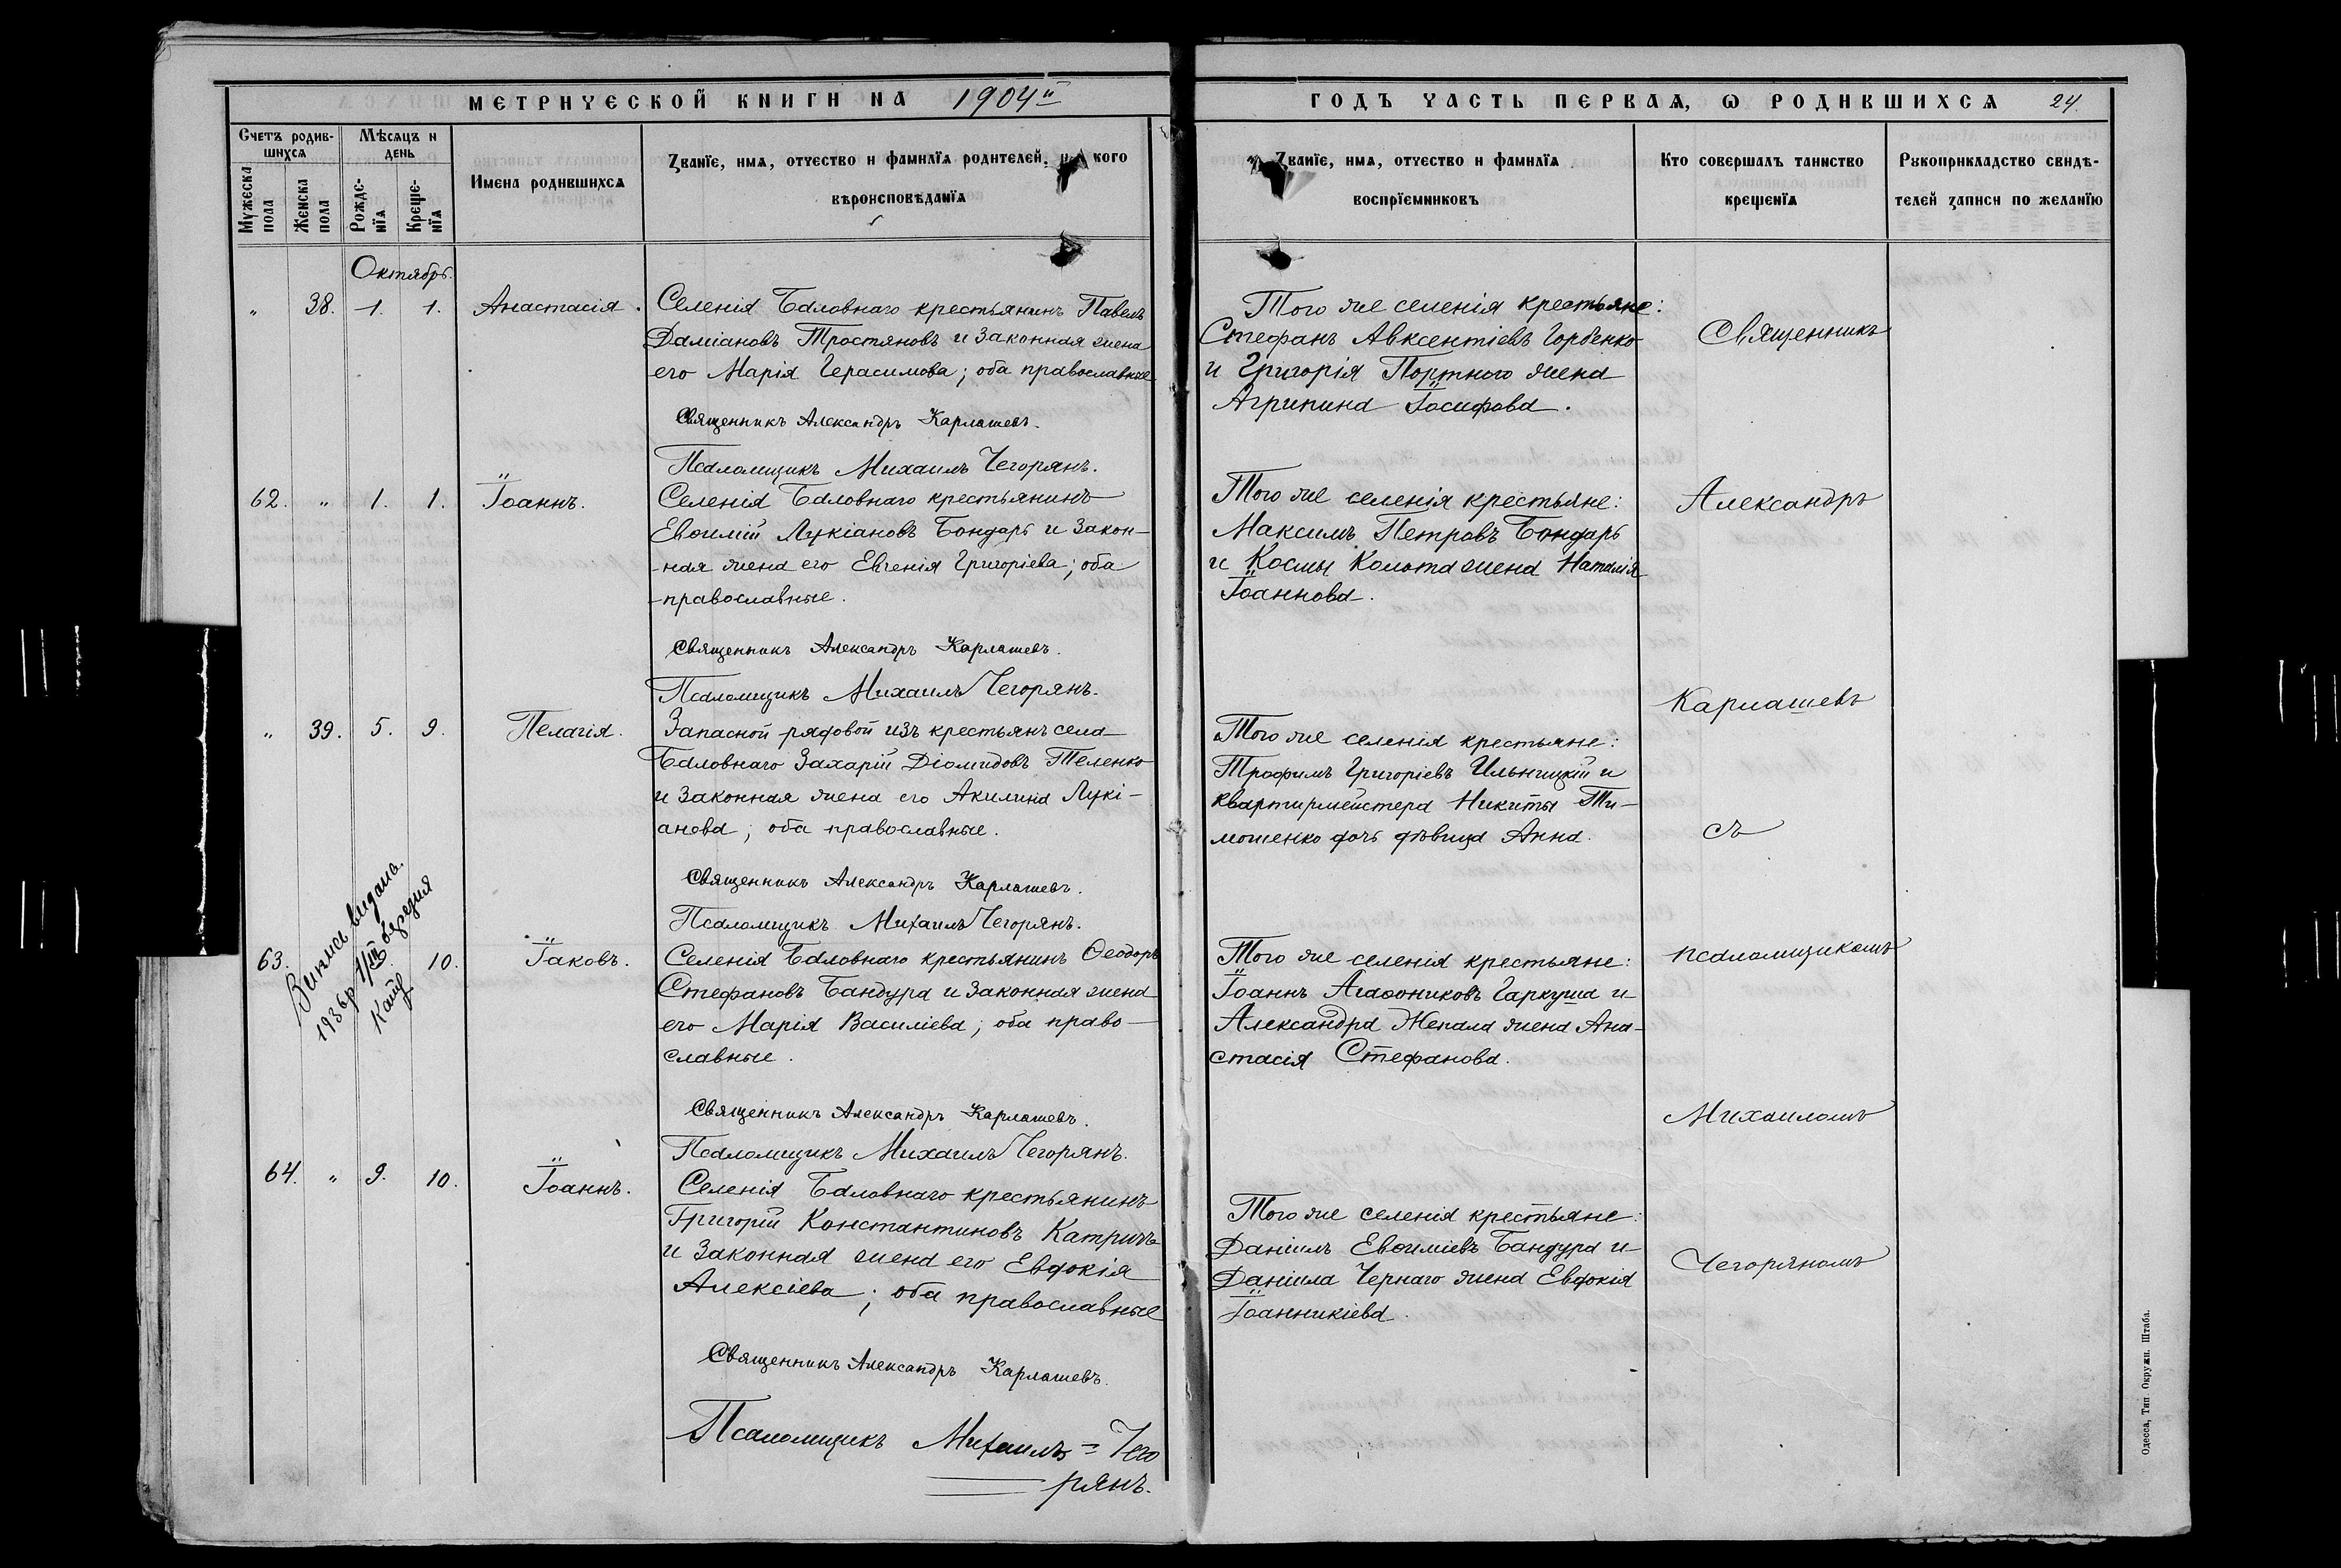 МЕТРИЧЕСКОЙ КНИГИ НА 1904й
Счетъ родив-
шихся
Мѣсяцъ и
день
Мужеска
пола
Женска
пола
Рожде-
нїя
Креще-
нїя
Имена родившихся
Званїе, имя, отчество и фамилїя родителей, и кого
вѣроисповѣданїя
Октябрь.
" 38. 1. 1. Анастасія.
Селенія Баловнаго крестьянинъ Павелъ
Даміановъ Тростяновъ и законная жена
его Марія Герасимова; оба православные
Священникъ Александръ Карлашевъ.
Псаломщикъ Михаилъ Чегорянъ.
62. " 1. 1. Іоаннъ.
Селенія Баловнаго крестьянинъ
Евѳимій Лукіановъ Бондарь и закон-
ная жена его Евгенія Григоріева; оба
православные.
Священникъ Александръ Карлашевъ.
Псаломщикъ Михаилъ Чегорянъ.
" 39. 5. 9. Пелагія.
Запасной рядовой изъ крестьянъ села
Баловнаго Захарій Діомидовъ Теленко
и законная жена его Акилина Лукі-
анова; оба православные.
Священникъ Александръ Карлашевъ.
Псаломщикъ Михаилъ Чегорянъ.
63. 10. Іаковъ.
Випись видана.
1936р 1/III
Селенія Баловнаго крестьянинъ Ѳеодоръ
Стефановъ Бандура и законная жена
его Марія Василіева; оба право-
славные.
Священникъ Александръ Карлашевъ.
Псаломщикъ Михаилъ Чегорянъ.
64. " 9. 10. Іоаннъ.
Селенія Баловнаго крестьянинъ
Григорій Константиновъ Катричъ
и законная жена его Евдокія
Алексіева; оба православные
Священникъ Александръ Карлашевъ.
Псаломщикъ Михаилъ = Чего
рянъ.
ГОДЪ ЧАСТЬ ПЕРВАЯ, Ѡ РОДИВШИХСЯ 24.
Званїе, имя, отчество и фамилїя
воспрїемниковъ
Кто совершалъ таинство
крещенїя
Рукоприкладство свидѣ-
телей записи по желанїю
Того же селенія крестьяне:
Стефанъ Авксентіевъ Горбенко
и Григорія Портного жена
Агрипина Іосифова.
Того же селенія крестьяне:
Максимъ Петровъ Бондарь
и Космы Колота жена Наталія
Іоаннова.
Того же селенія крестьяне:
Трофимъ Григоріевъ Ильницкій и
квартирмейстера Никиты Ти-
мошенко дочь дѣвица Анна.
Того же селенія крестьяне:
Іоаннъ Агаѳониковъ Гаркуша и
Александра Жепала жена Ана-
стасія Стефанова.
Того же селенія крестьяне:
Даніилъ Евѳиміевъ Бандура и
Даніила Чернаго жена Евдокія
Іоанникіева.
Священникъ
Александръ
Карлашевъ
съ
псаломщикомъ
Михаиломъ
Чегоряномъ
Одесса, Тип. Окружн. Штаба.